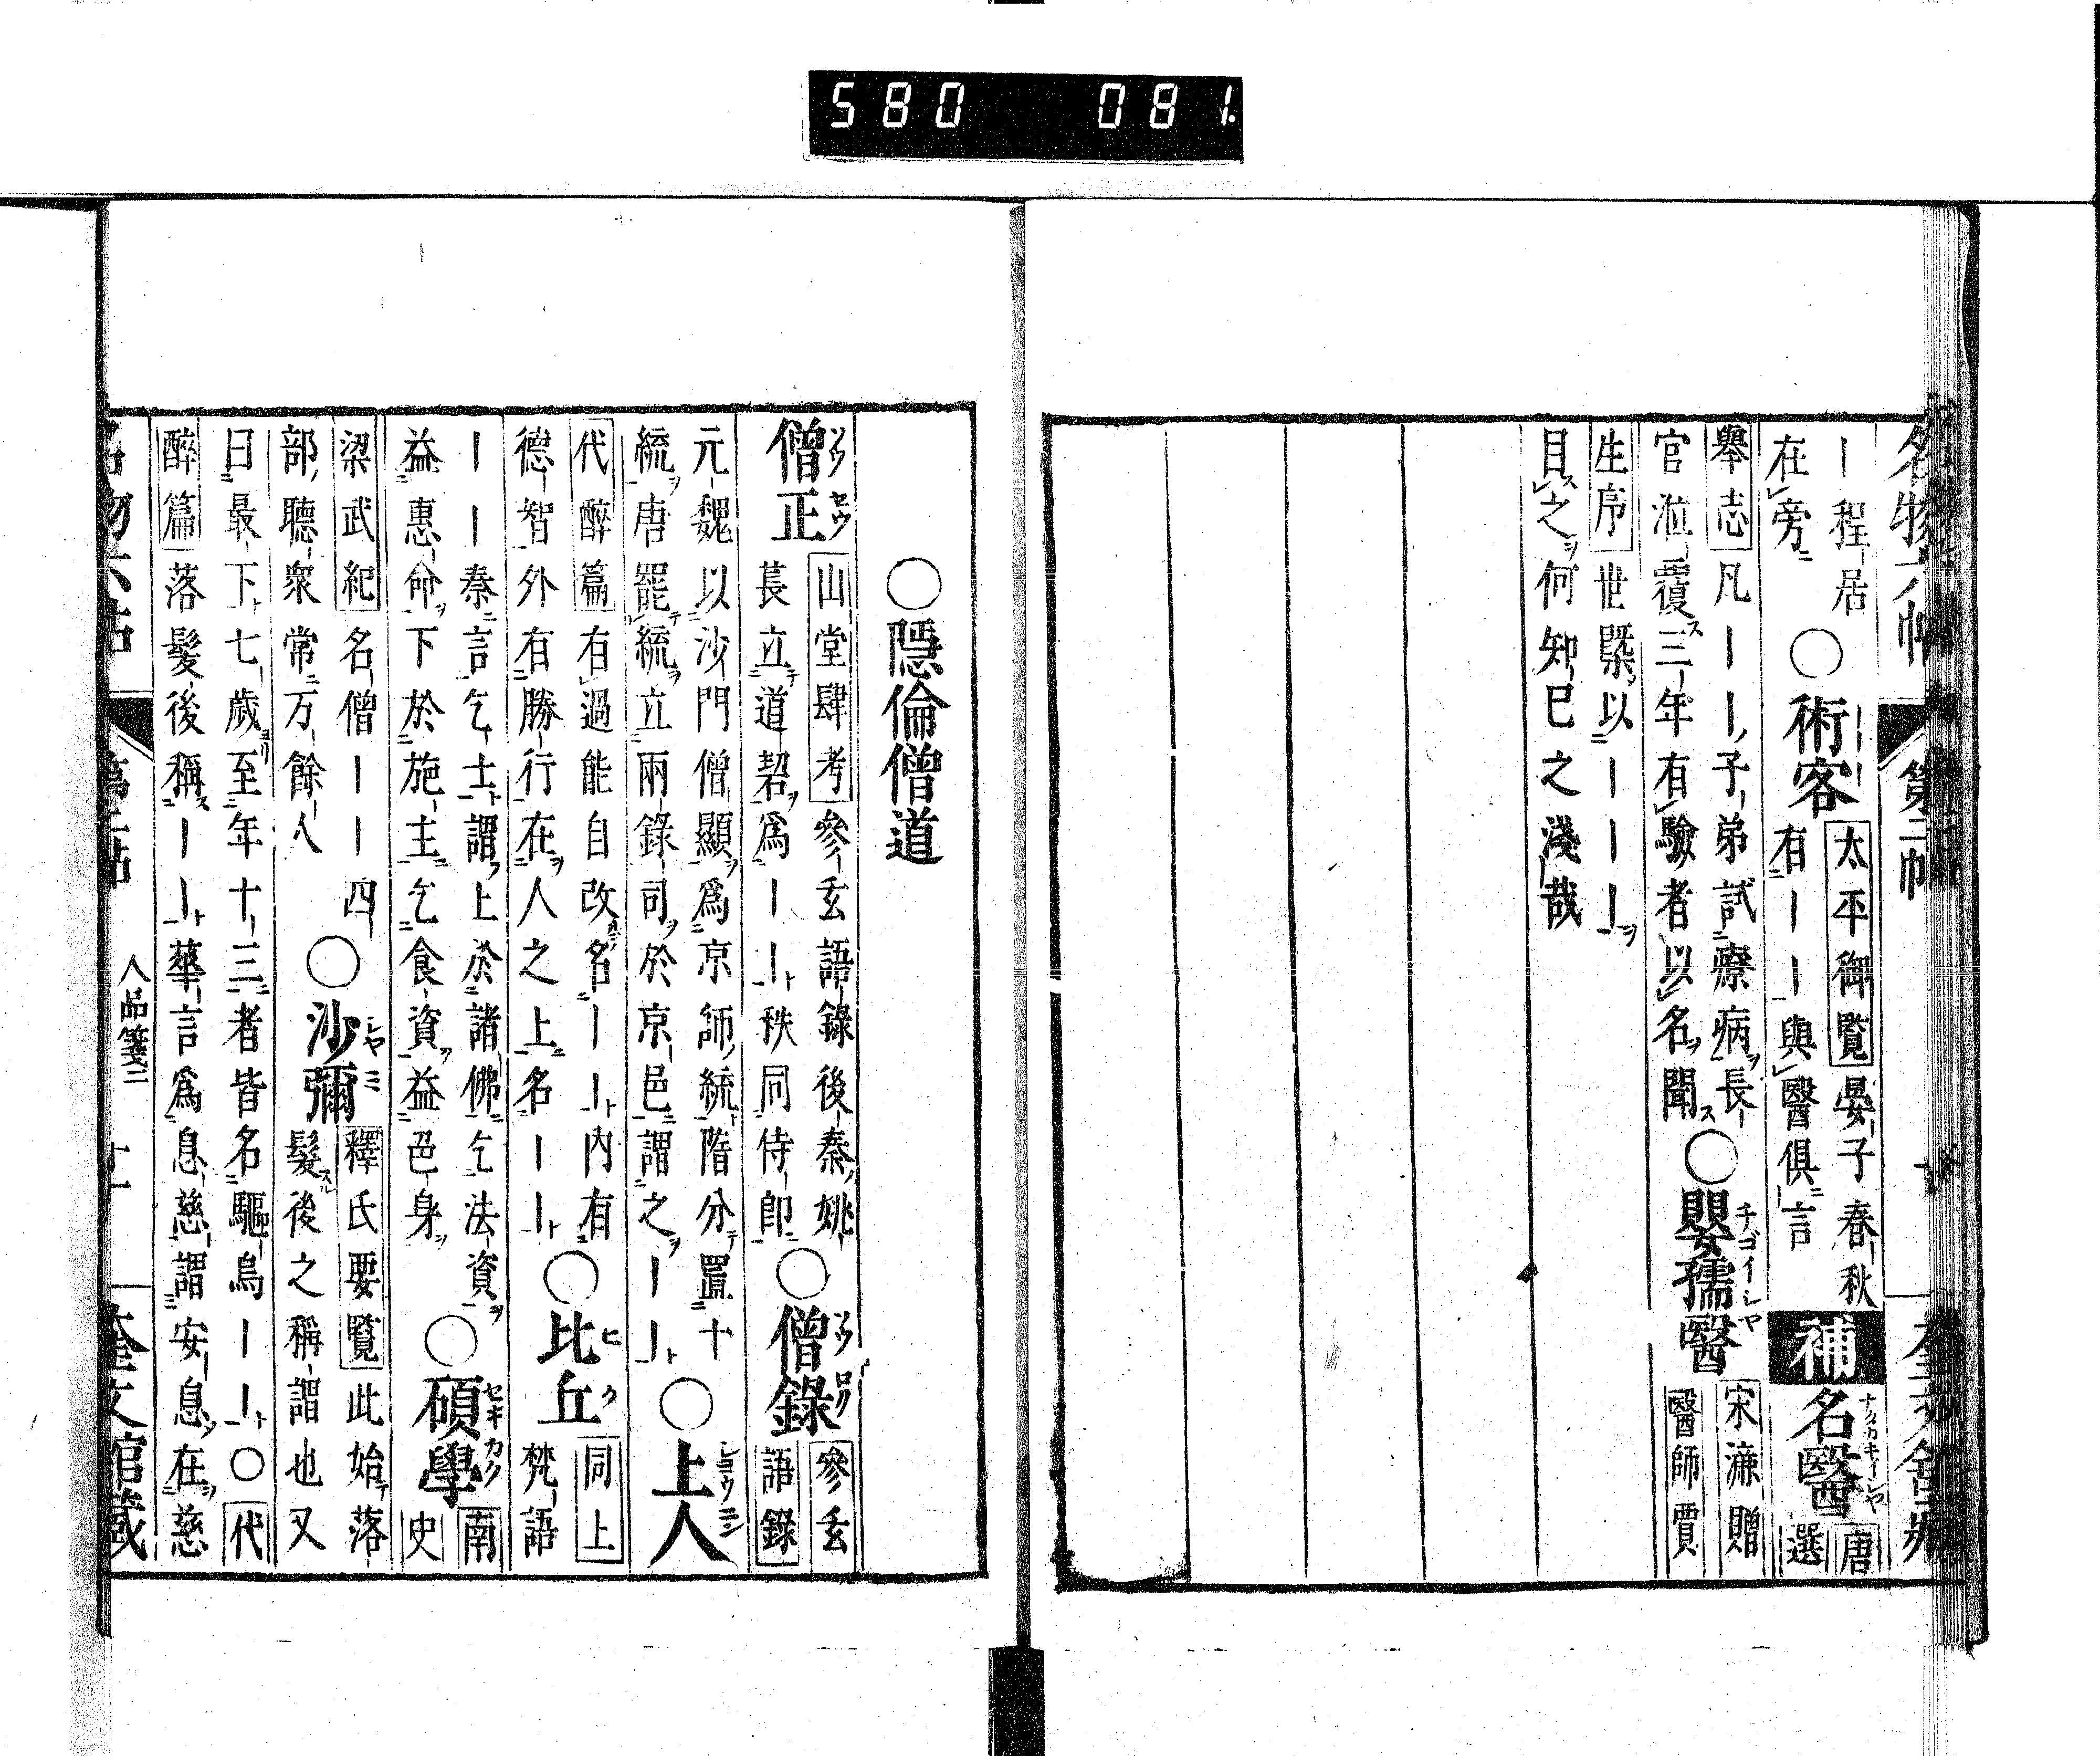 580 081.
名物六帖 第二帖
｜程居
在旁 ○術客 太平御覧 晏子春秋
有｜｜與醫俱言 補 名醫 ナタカキイシヤ 唐
選
舉志 凡｜｜子弟試療病長
官涖覆三年有驗者以名聞 ○嬰孺醫 チゴイシヤ 宋濂贈
醫師賈
生序 世槩以｜｜｜
目之何知巳之淺哉
○隱倫僧道
僧正 ソウセウ 山堂肆考 參玄語錄後秦姚
萇立道䂮爲｜｜秩同侍郎 ○僧錄 ソウロク 參玄
語錄
元魏以沙門僧顯爲京師統階分置十
統唐罷統立兩錄司於京邑謂之｜｜ ○上人 シヨウニン
代醉篇 有過能自改名｜｜内有
德智外有勝行在人之上名｜｜ ○比丘 ヒク 同上
梵語
｜｜秦言乞士謂上於諸佛乞法資
益惠命下於施主乞食資益色身 ○碩學 セキカク 南
史
梁武紀 名僧｜｜四
部聽衆常万餘人 ○沙彌 シヤミ 釋氏要覧 此始落
髮後之稱謂也又
曰最下七歲至年十三者皆名驅烏｜｜○代
醉篇 落髮後稱｜｜華言爲息慈謂安息在慈
名物六帖 第二帖 人品箋三 十一 奎文館藏